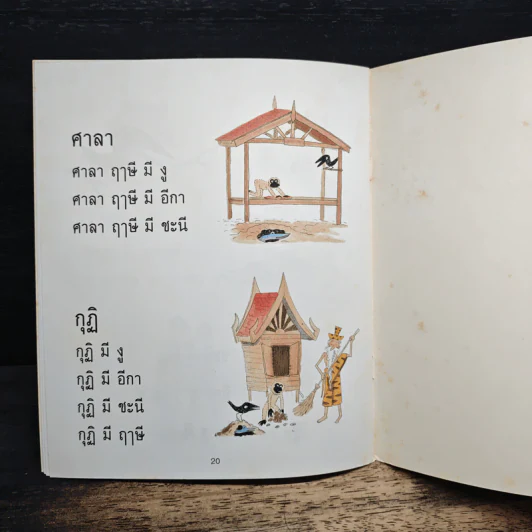 ศาลา
ศาลา ฤๅษี มี งู
ศาลา ฤๅษี มี อีกา
ศาลา ฤๅษี มี ชะนี
กุฏิ
กุฏิ มี งู
กุฏิ มี อีกา
กุฏิ มี ชะนี
กุฏิ มี ฤๅษี
20